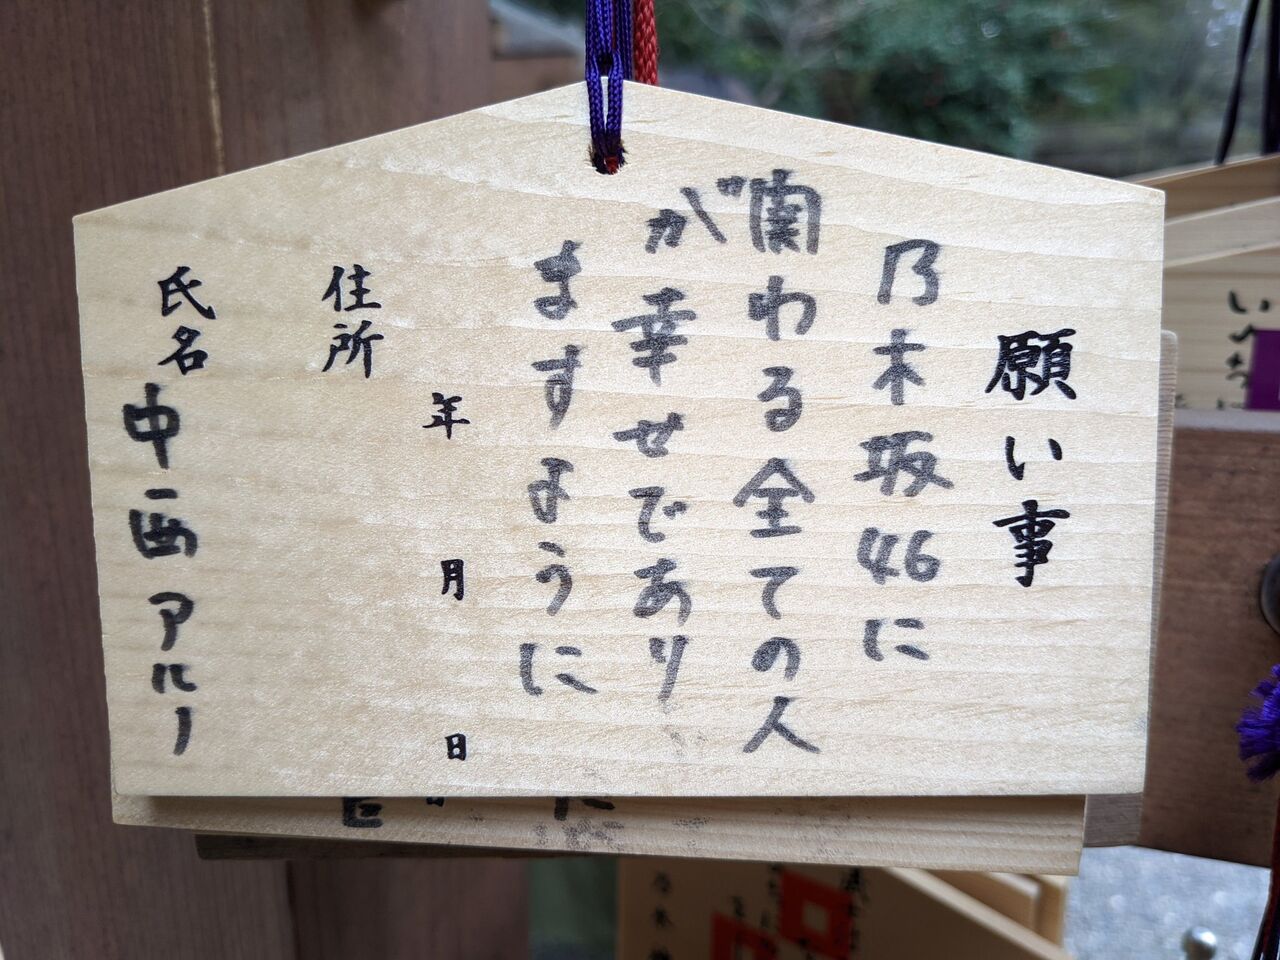 願い事
乃木坂46に
関わる全ての人
が幸せであり
ますように
年 月 日
住所
氏名
中西アルノ